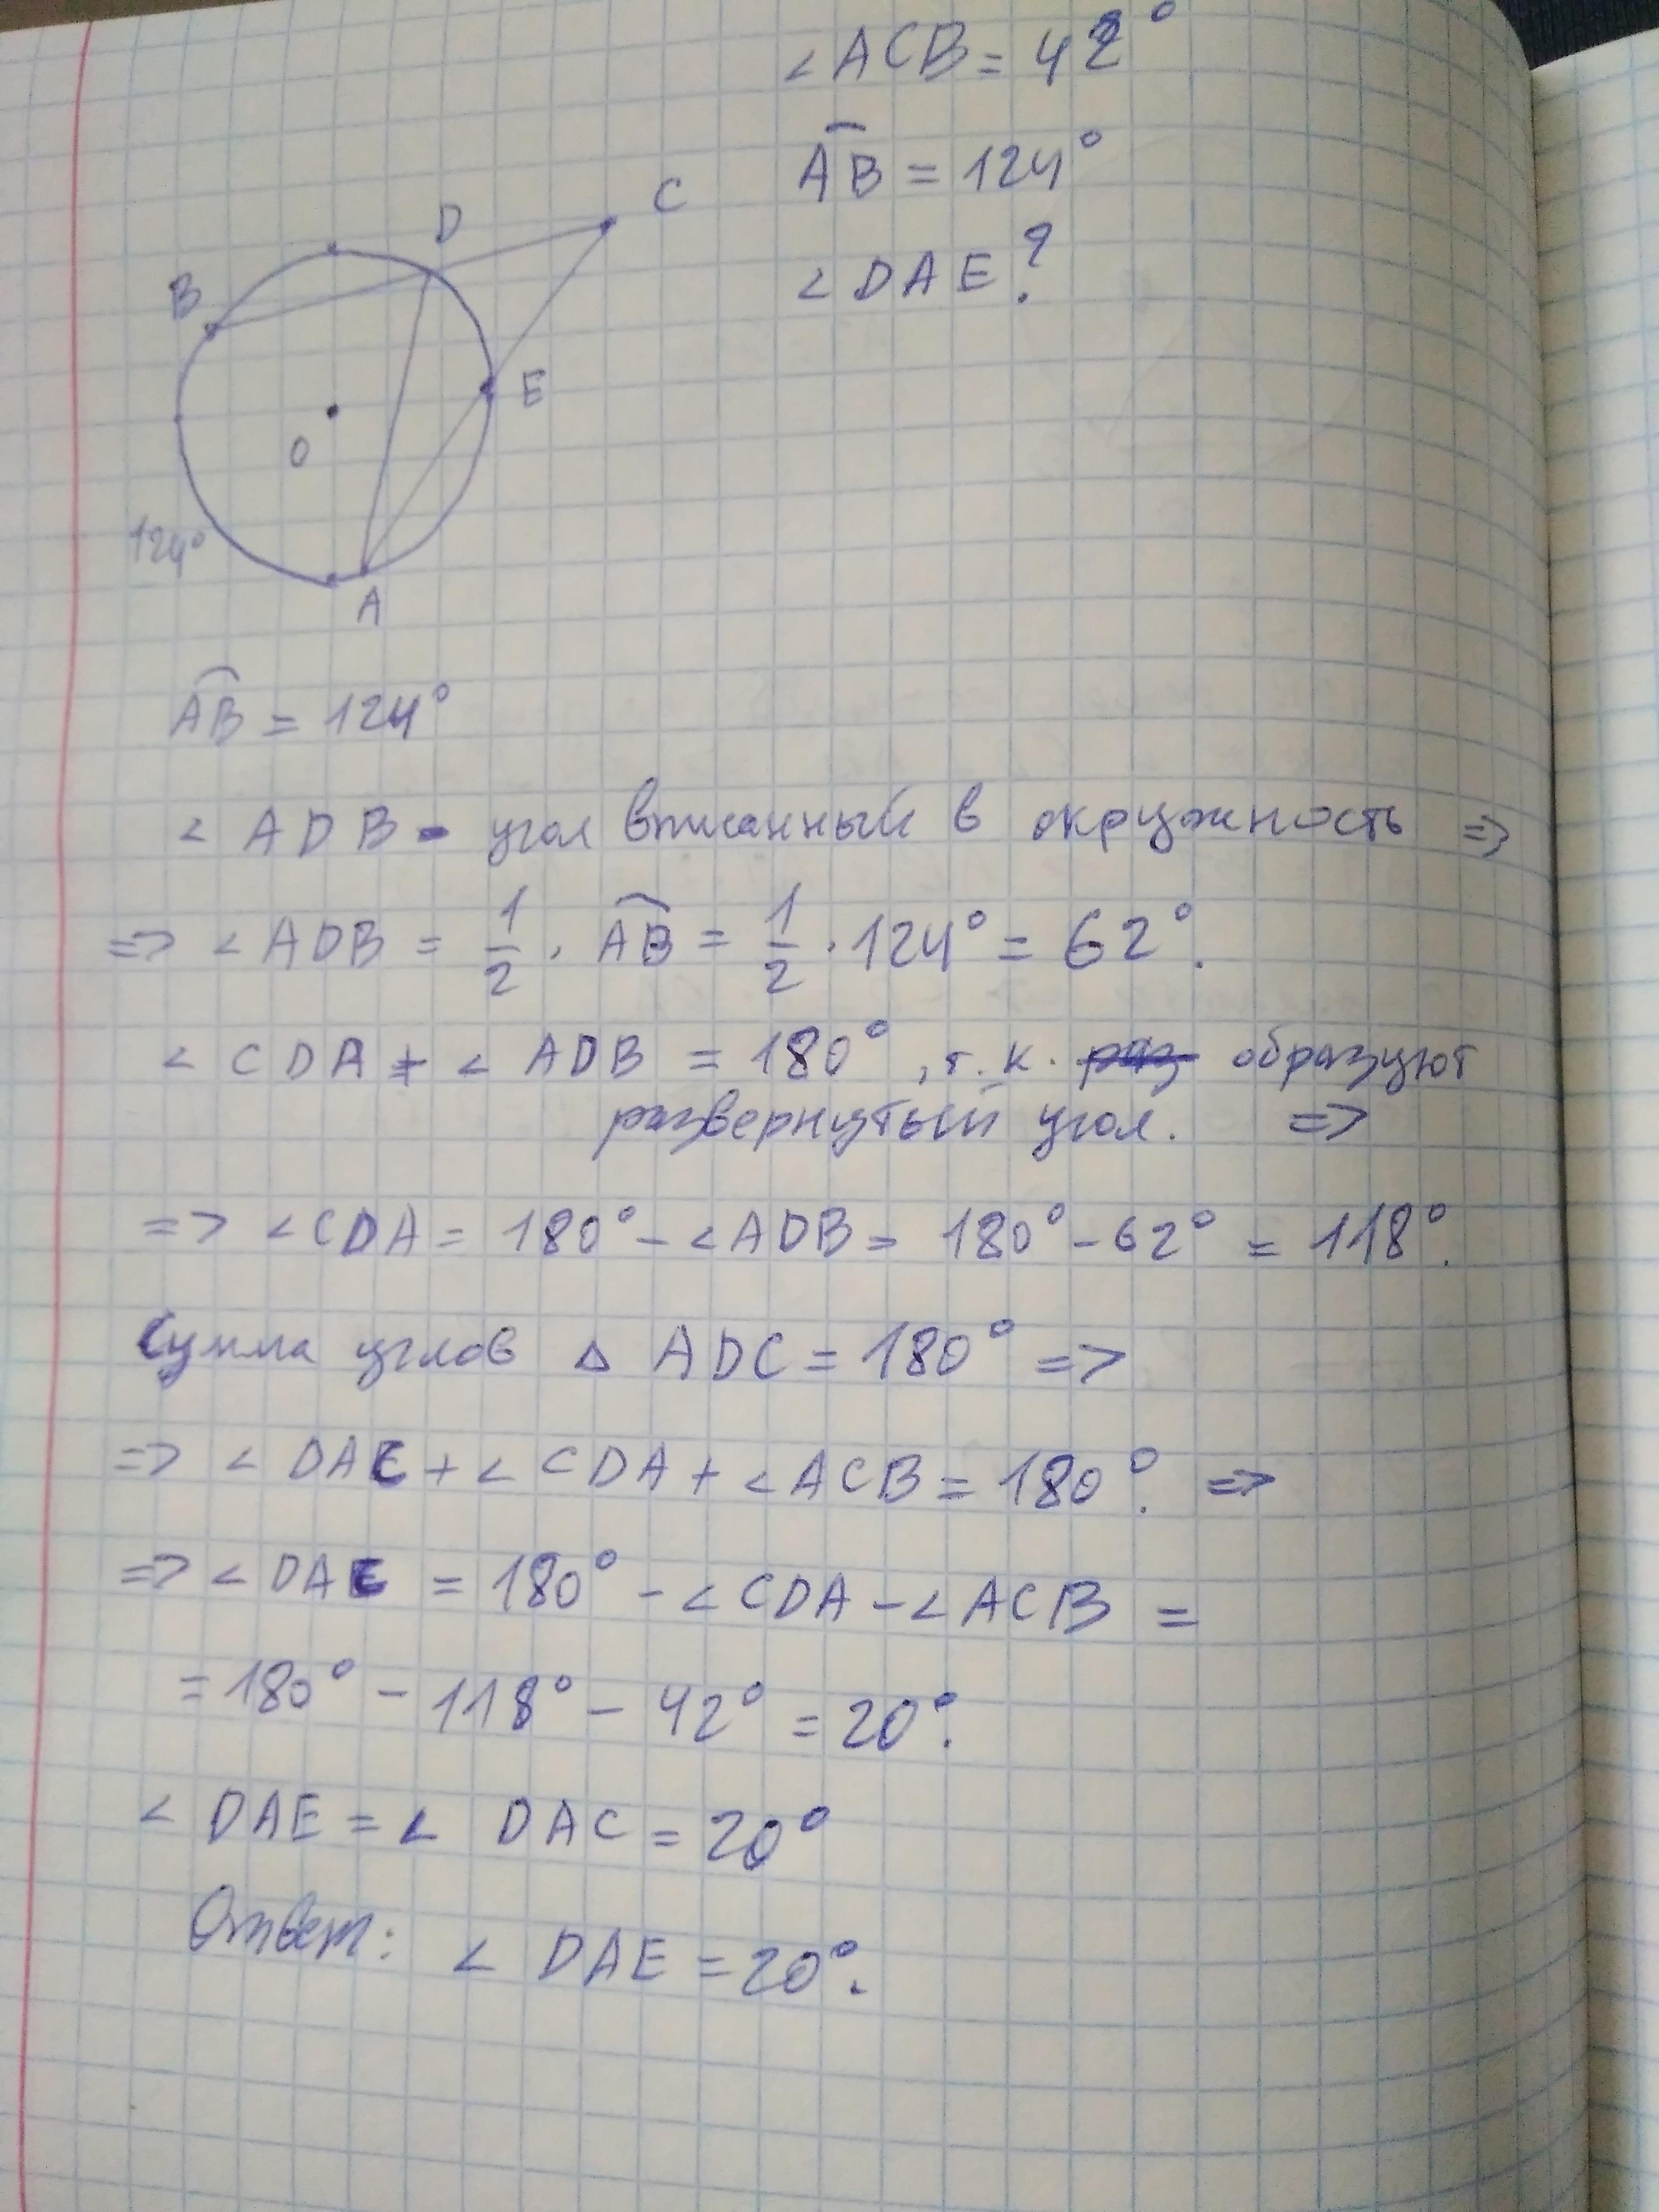 ∠ACB = 42°
⌒AB = 124°
∠DAE ?
C
D
B
E
O
124°
A
⌒AB = 124°
∠ADB - угол вписанный в окружность =>
=> ∠ADB = 1/2 · ⌒AB = 1/2 · 124° = 62°.
∠CDA + ∠ADB = 180°, т.к. раз образуют
развернутый угол. =>
=> ∠CDA = 180° - ∠ADB = 180° - 62° = 118°.
Сумма углов Δ ADC = 180° =>
=> ∠DAC + ∠CDA + ∠ACB = 180°. =>
=> ∠DAC = 180° - ∠CDA - ∠ACB =
= 180° - 118° - 42° = 20°.
∠DAE = ∠DAC = 20°
Ответ: ∠DAE = 20°.